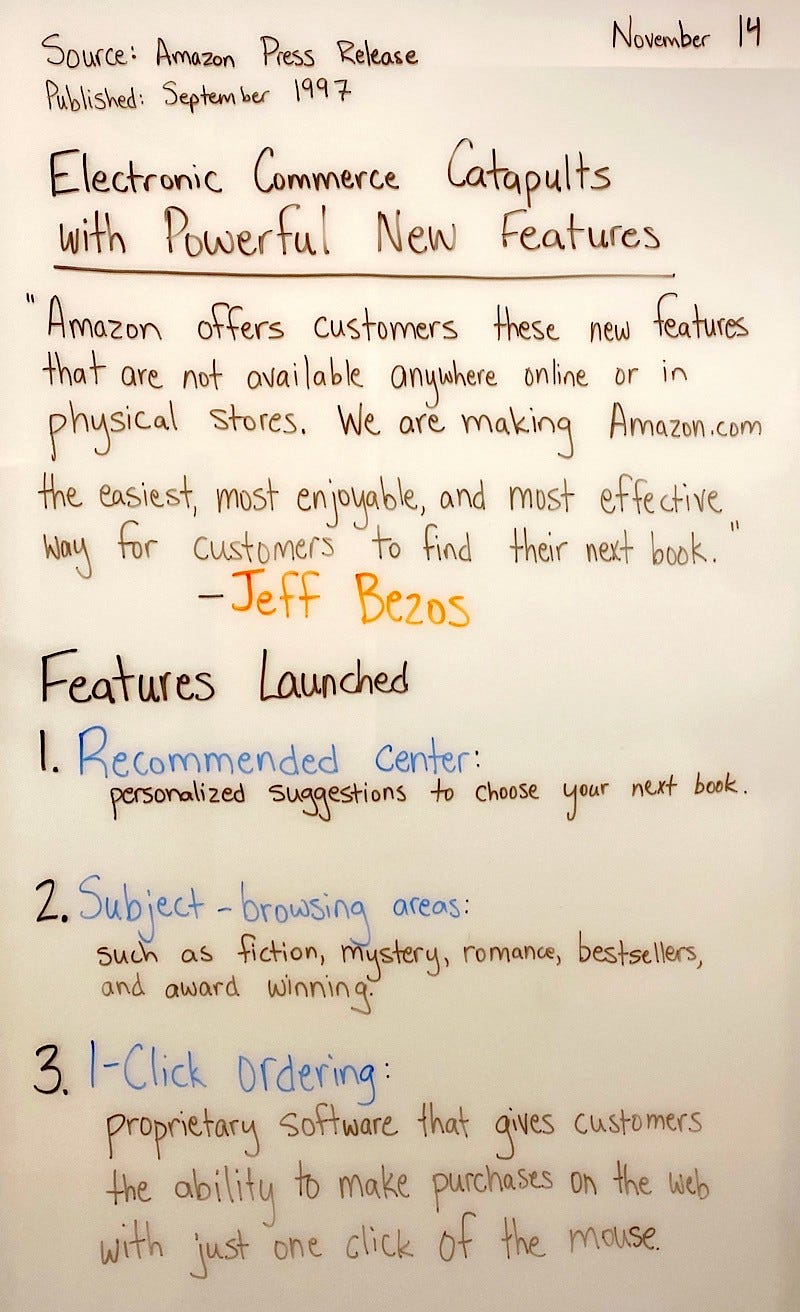 November 14
Source: Amazon Press Release
Published: September 1997
Electronic Commerce Catapults
with Powerful New Features
"Amazon offers customers these new features
that are not available anywhere online or in
physical stores. We are making Amazon.com
the easiest, most enjoyable, and most effective
way for customers to find their next book."
- Jeff Bezos
Features Launched
1. Recommended center:
personalized suggestions to choose your next book.
2. Subject-browsing areas:
such as fiction, mystery, romance, bestsellers,
and award winning.
3. 1-Click ordering:
proprietary software that gives customers
the ability to make purchases on the web
with just one click of the mouse.